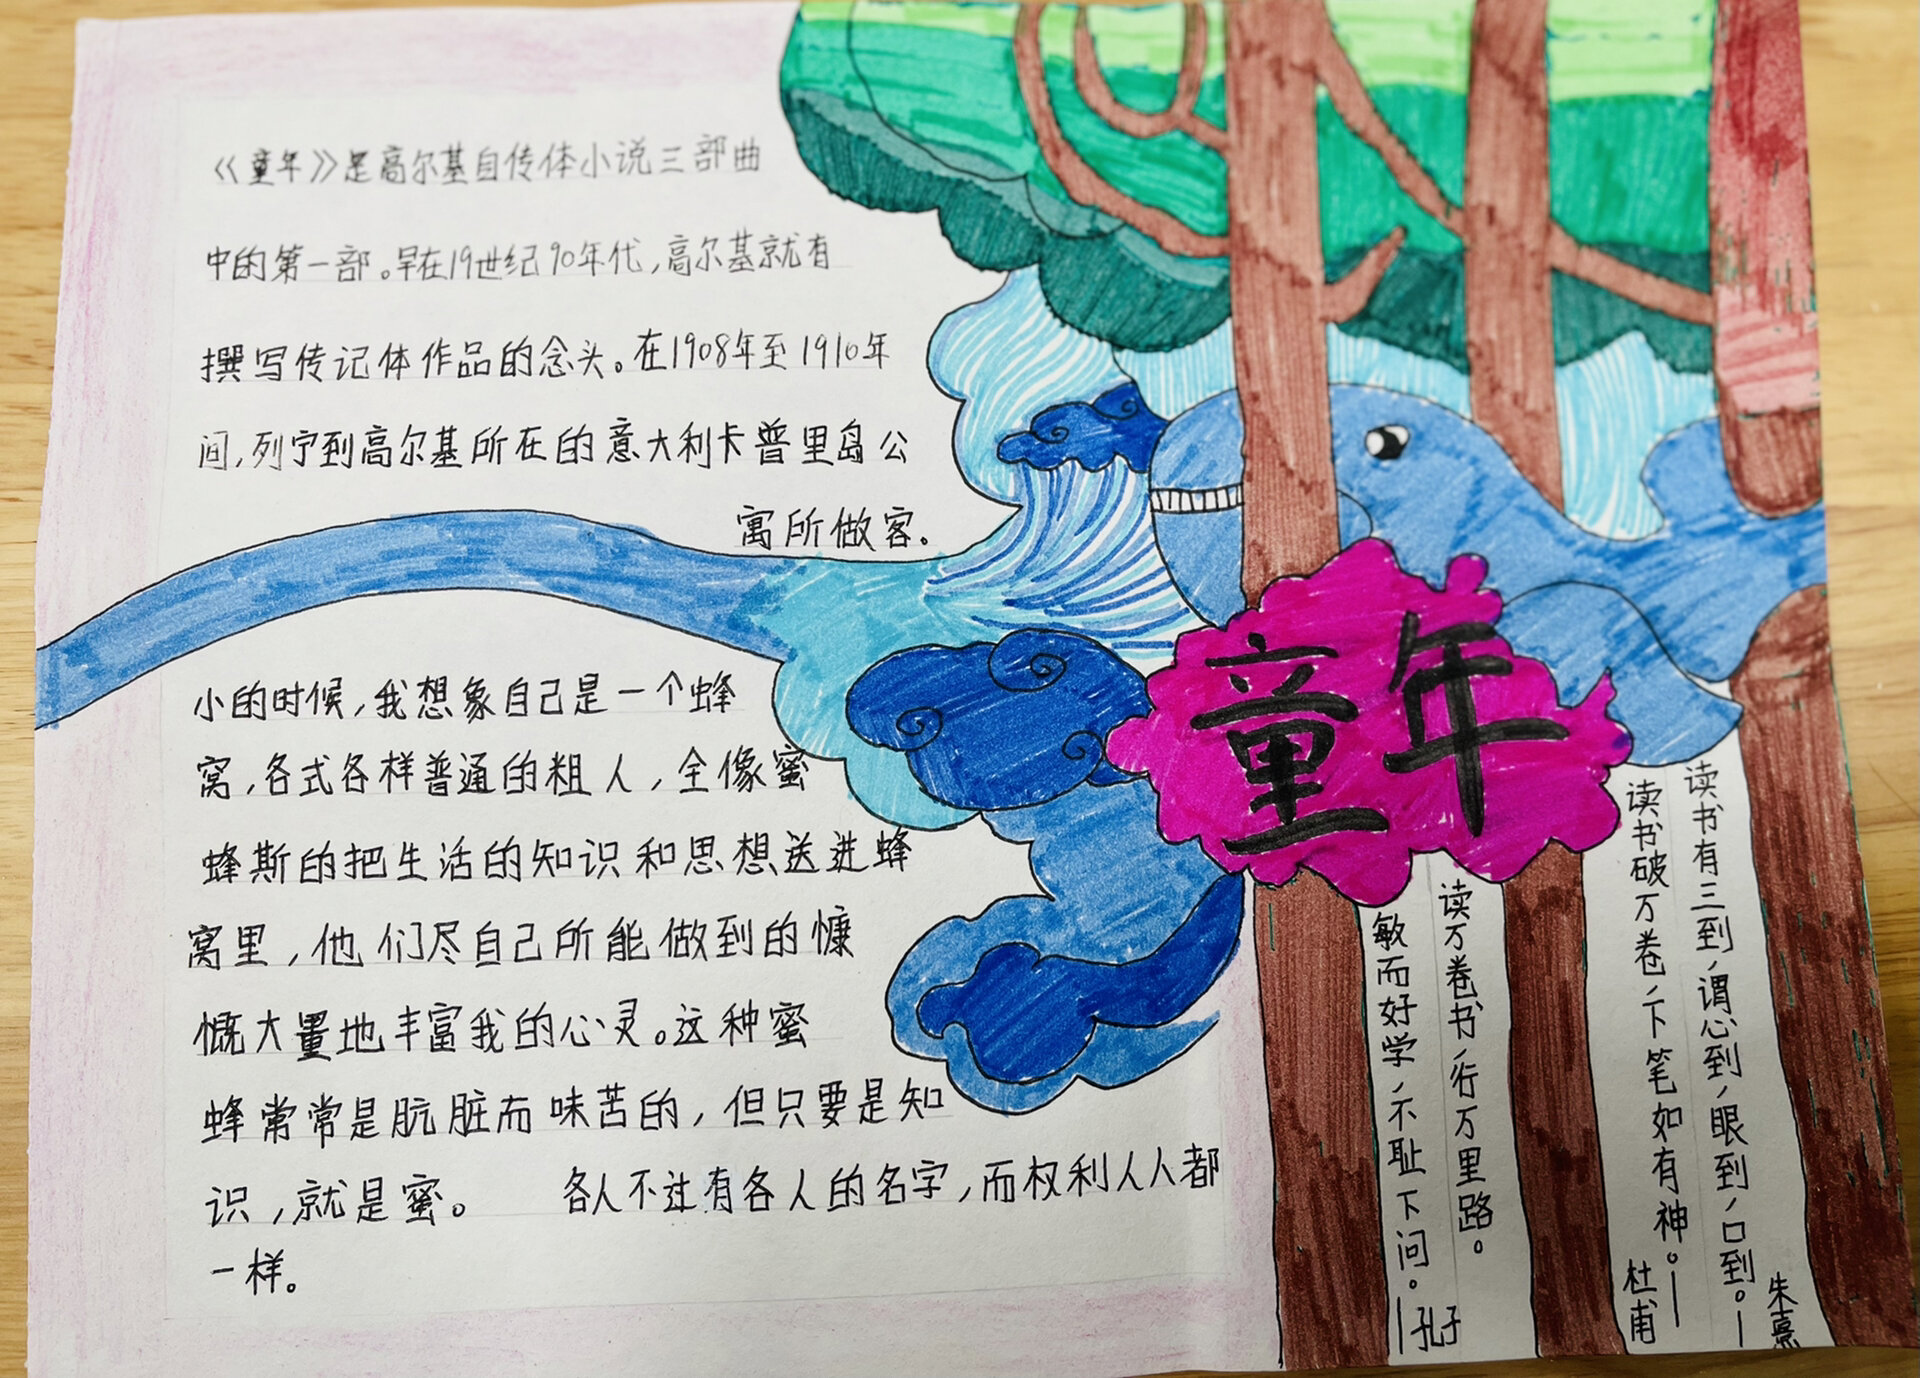 《童年》是高尔基自传体小说三部曲
中的第一部。早在19世纪90年代,高尔基就有
撰写传记体作品的念头。在1908年至1910年
间,列宁到高尔基所在的意大利卡普里岛公
寓所做客。
小的时候,我想象自己是一个蜂
窝,各式各样普通的粗人,全像蜜
蜂斯的把生活的知识和思想送进蜂
窝里,他们尽自己所能做到的慷
慨大量地丰富我的心灵。这种蜜
蜂常常是肮脏而味苦的,但只要是知
识,就是蜜。 各人不过有各人的名字,而权利人人都
一样。
童年
读书有三到,谓心到,眼到,口到。—
朱熹
读书破万卷,下笔如有神。—
杜甫
读万卷书,行万里路。
敏而好学,不耻下问。—孔子